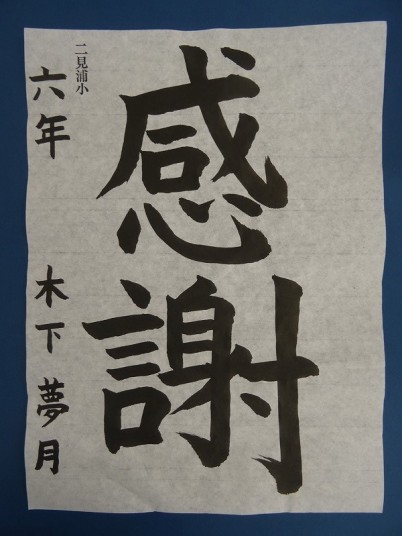 感謝
二見浦小
六年 木下夢月